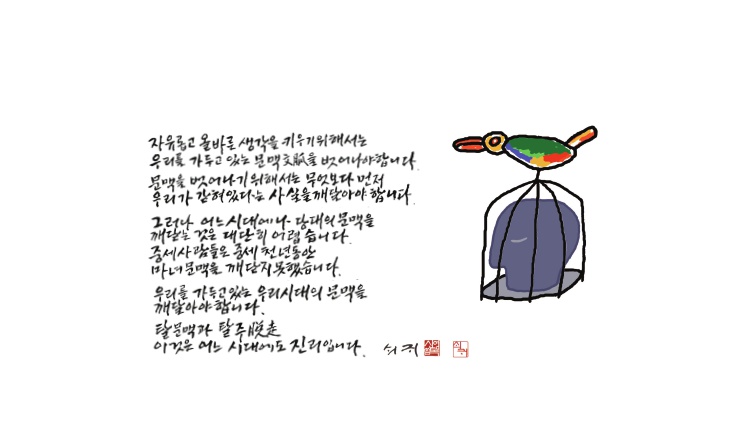 자유롭고 올바른 생각을 키우기위해서는
우리를 가두고 있는 문맥文脈을 벗어나야합니다.
문맥을 벗어나기위해서는 무엇보다 먼저
우리가 갇혀있다는 사실을깨달아야 합니다.
그러나 어느시대에나 당대의문맥을
깨닫는 것은 대단히 어렵습니다.
중세사람들은 중세 천년동안
마녀문맥을 깨닫지못했습니다.
우리를 가두고있는 우리시대의 문맥을
깨달아야 합니다.
탈문맥과 탈주脫走
이것은 어느 시대에도 진리입니다. 쇠귀